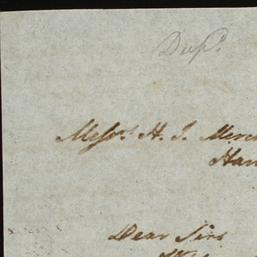 Dupe.
Messrs. H. J. Merc
Ham
Dear Sirs